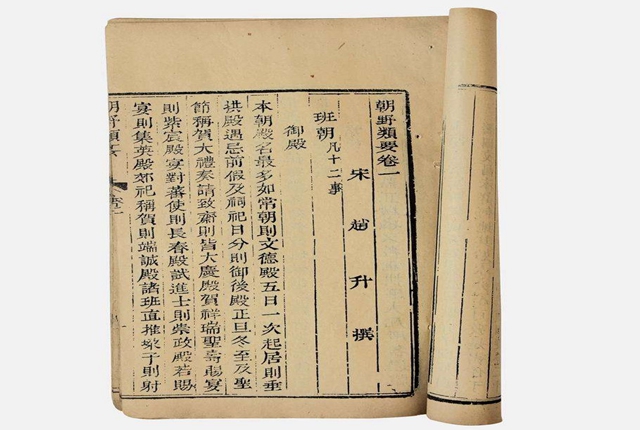 朝野類要卷一
宋趙升撰
班朝凡十二事
御殿
本朝殿名最多如常朝則文德殿五日一次起居則垂
拱殿遇忌前假及祠祀日分則御後殿正旦冬至及聖
節稱賀大禮奏請致齋則皆大慶殿賀祥瑞聖壽賜宴
則紫宸殿宴對蕃使則長春殿試進士則崇政殿若賜
宴則集英殿郊祀稱賀則端誠殿諸班直推垜子則射